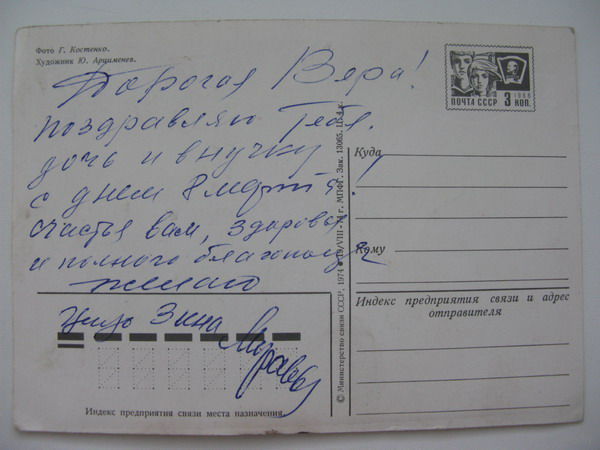 Фото Г. Костенко.
Художник Ю. Арцименев.
Дорогая Вера!
поздравляю Тебя.
дочь и внучку
с днем 8 марта!
счастья вам, здоровья
и полного благополучия
желаю
Зина
ПОЧТА СССР 3 КОП.
1966
Куда
Кому
Индекс предприятия связи и адрес
отправителя
Индекс предприятия связи места назначения.
© Министерство связи СССР, 1974